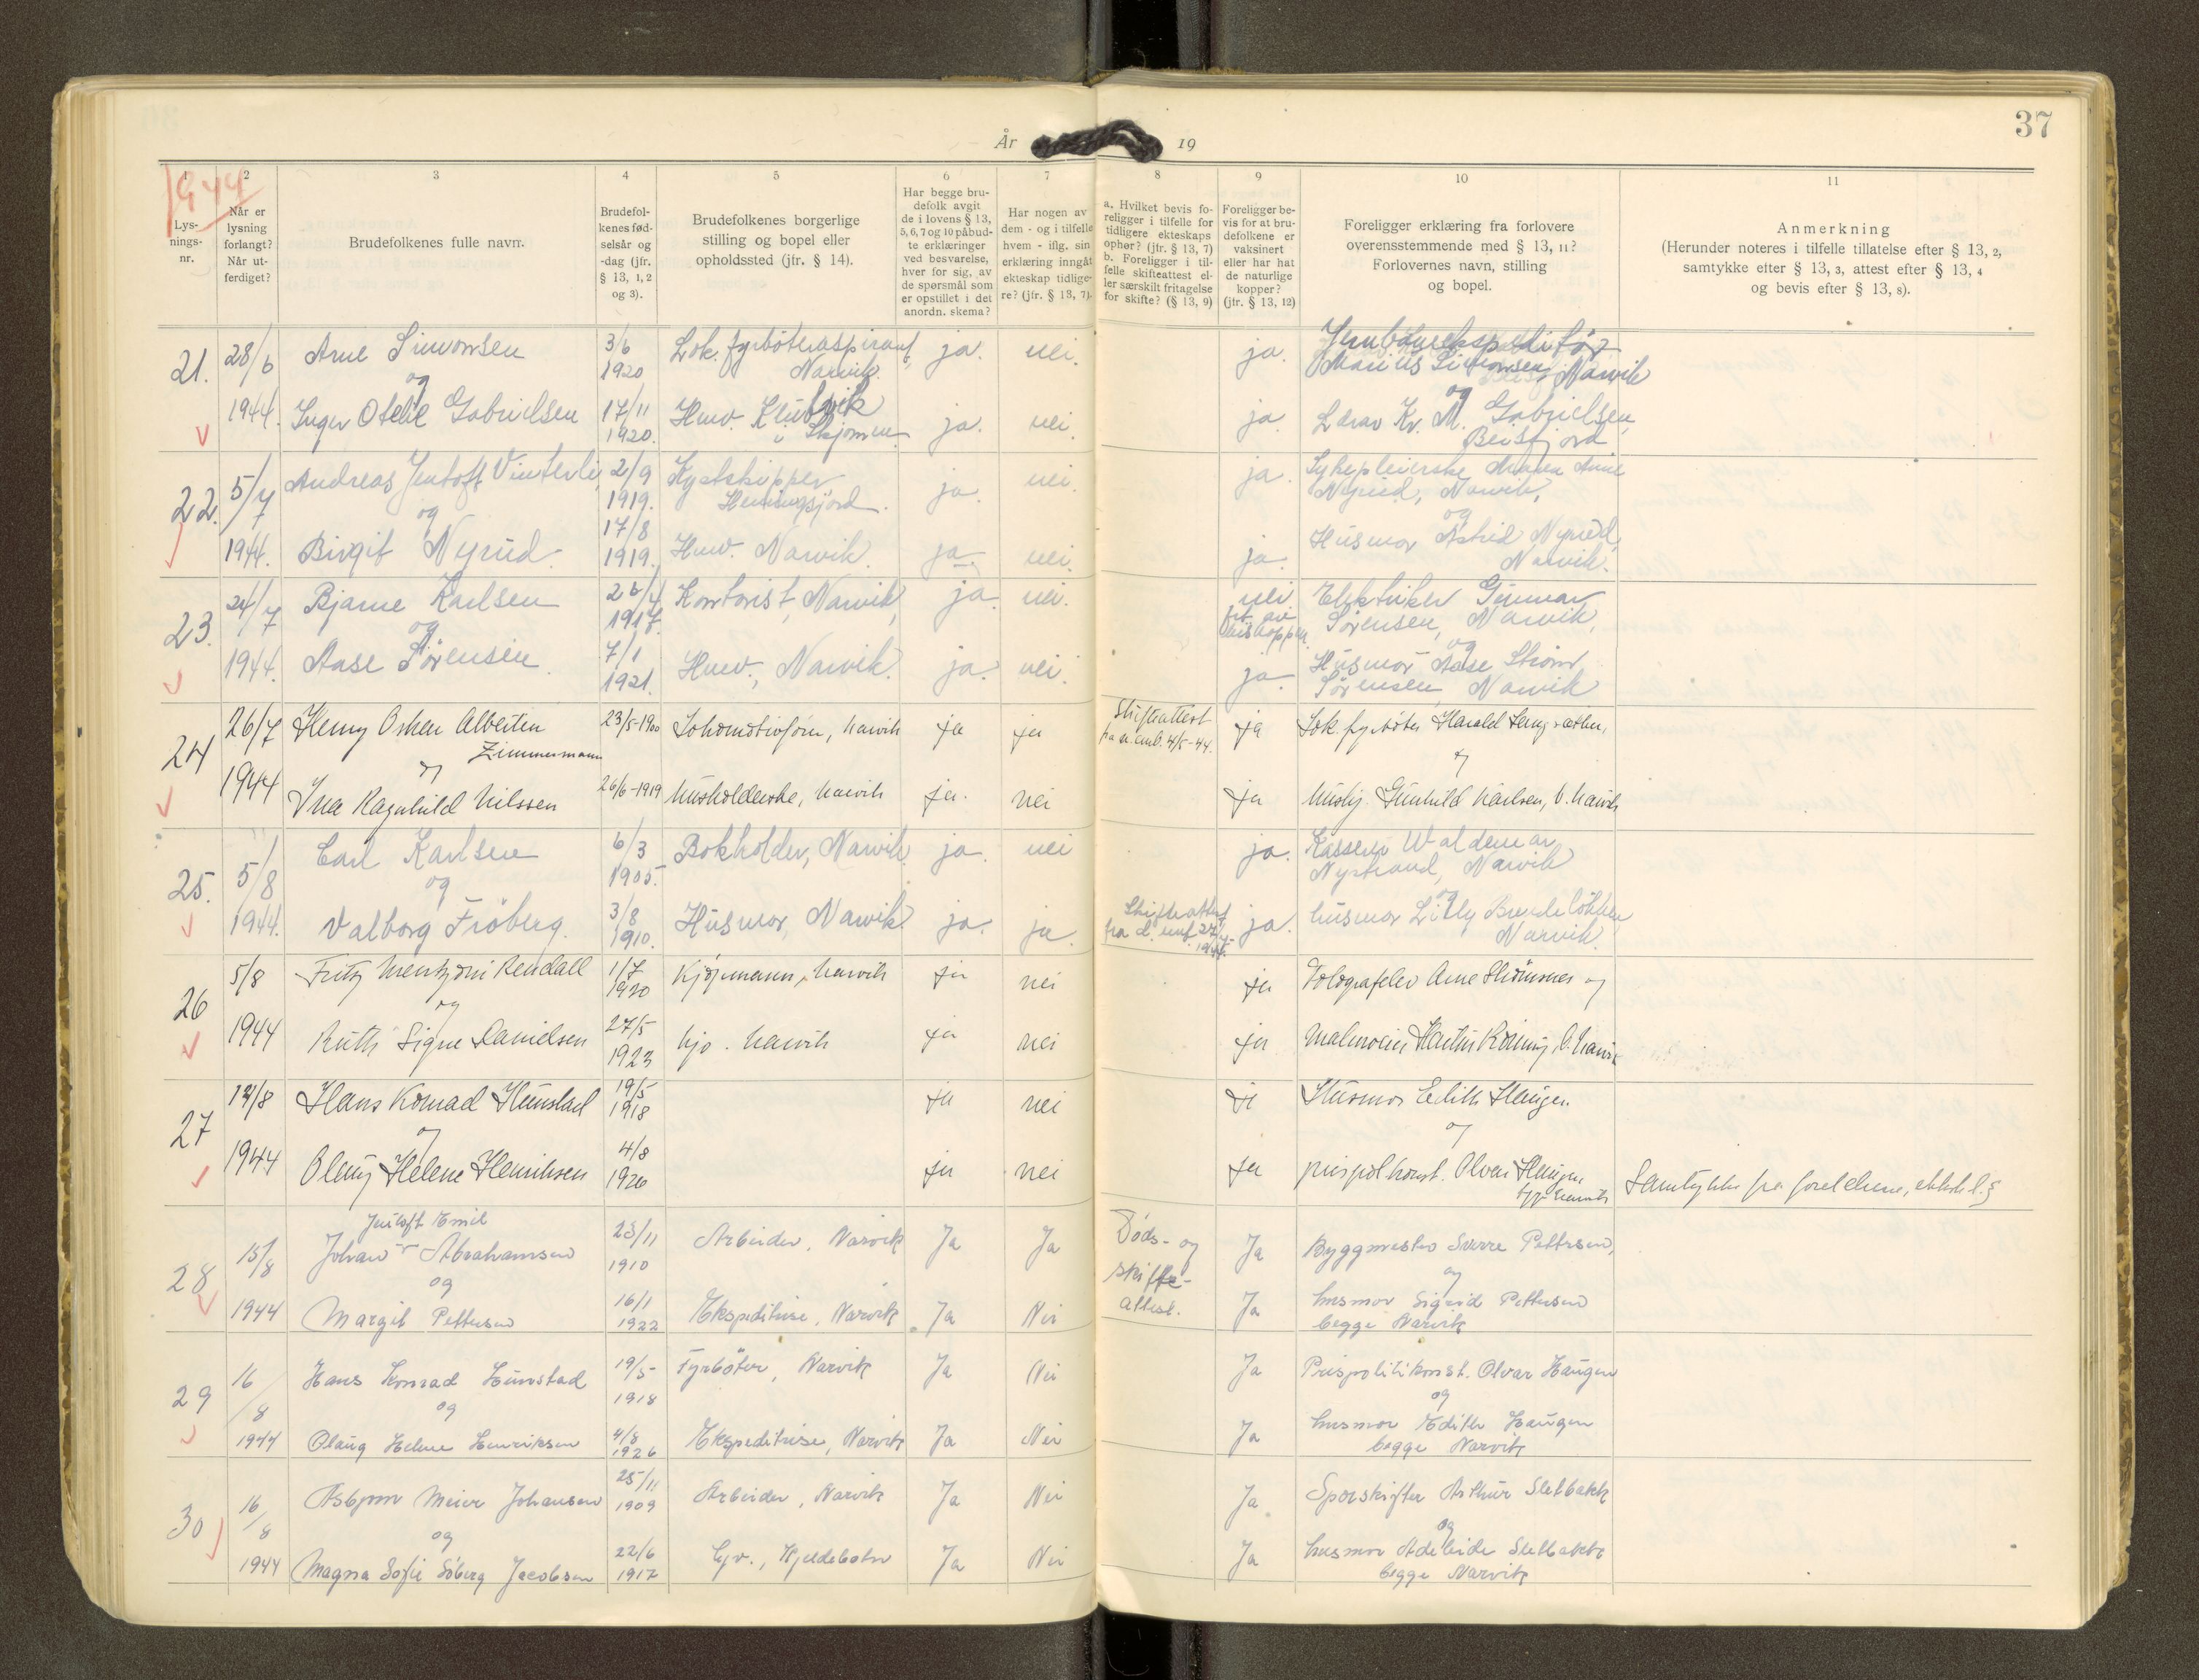 År
19
37
1944
1
2
3
4
5
6
7
8
9
10
11
Lys-
nings-
nr.
Når er
lysning
forlangt?
Når ut-
ferdiget?
Brudefolkenes fulle navn.
Brudefol-
kenes fød-
selsår og
-dag (jfr.
§ 13, 1, 2
og 3).
Brudefolkenes borgerlige
stilling og bopel eller
opholdssted (jfr. § 14).
Har begge bru-
defolk avgit
de i lovens § 13,
5, 6, 7 og 10 påbud-
te erklæringer
ved besvarelse,
hver for sig, av
de spørsmål som
er opstillet i det
anordn. skema?
Har nogen av
dem - og i tilfelle
hvem - iflg. sin
erklæring inngåt
ekteskap tidlige-
re? (jfr. § 13, 7).
a. Hvilket bevis fo-
religger i tilfelle for
tidligere ekteskaps
ophør? (jfr. § 13, 7)
b. Foreligger i til-
felle skifteattest el-
ler særskilt fritagelse
for skifte? (§ 13, 9)
Foreligger be-
vis for at bru-
defolkene er
vaksinert
eller har hat
de naturlige
kopper?
(jfr. § 13, 12)
Foreligger erklæring fra forlovere
overensstemmende med § 13, 11?
Forlovernes navn, stilling
og bopel.
Anmerkning
(Herunder noteres i tilfelle tillatelse efter § 13, 2,
samtykke efter § 13, 3, attest efter § 13, 4
og bevis efter § 13, 8).
21. 28/6 Arne Simonsen 3/6 1920 Lok. fyrbøteraspirant, Narvik. ja. nei. ja.
Marius Simonsen, Narvik
og
1944. Inger Otelie Gabrielsen 17/11 1920. Husv. i Skjomen ja. nei. ja. Lærer Kr. M. Gabrielsen,
Beisfjord
22. 5/7 Andreas Jentoft Vinterli, 2/9 1919. Kystskipper ja. nei. ja. Sykepleierske
Nyrud, Narvik,
og
1944. Birgit Nyrud. 17/8 1919. Husv. Narvik. ja. nei. ja. Husmor Astrid Nyrud,
Narvik.
23. 24/7 Bjarne Karlsen 26/4 1917. Kontorist, Narvik, ja. nei. nei. Elektriker Gunnar
Sørensen, Narvik,
og
1944. Aase Sørensen. 7/1 1921. Husv., Narvik. ja. nei. ja. Husmor Aase Strøm
Sørensen, Narvik
24 26/7 Henry Oskar Albertin
Zimmermann 23/5-1900 Lokomotivfører, Narvik ja ja Skifteattest
4/5-44. ja Lok. fyrbøter Harald
og
1944 Ragnhild Nilssen 26/6-1919 Husholderske, Narvik ja. nei ja Gunhild Karlsen, b. Narvik
25. 5/8 Carl Karlsen 6/3 1905. Bokholder, Narvik. ja. nei ja. Kasserer Waldemar
Nystrand, Narvik
og
1944. Valborg Frøberg. 3/8 1910. Husmor, Narvik. ja. ja. Skifteattest
ja. husmor Lilly
Narvik.
26 5/8 Fritz Mentzoni Rendall 1/7 1920 Kjøpmann, Narvik ja nei ja Arne Strømsnes og
og
1944 Ruth Signe Danielsen 27/5 1923 hjv. Narvik ja nei ja b. Narvik
27 12/8 Hans Konrad Hunstad 19/5 1918 ja nei ja Husmor Edith Haugen.
og
1944 Olaug Helene Henriksen 4/8 1926 ja nei ja prispol.konst. Olvar Haugen,
Samtykke fra foreldrene,
28 15/8 Jentoft Emil
Johan Abrahamsen 23/11 1910 Arbeider, Narvik Ja Ja Døds- og
skifte-
attest. Ja Byggmester Sverre Pettersen,
og
1944 Margit Pettersen 16/1 1922 Ekspeditrise, Narvik. Ja Nei Ja husmor Sigrid Pettersen
begge Narvik
29 16/8 Hans Konrad Hunstad 19/5 1918 Fyrbøter, Narvik Ja Nei Ja Prispolitikonst. Olvar Haugen
og
1944 Olaug Helene Henriksen 4/8 1926 Ekspeditrise, Narvik Ja Nei Ja husmor Edith Haugen
begge Narvik
30 16/8 Asbjørn Meier Johansen 25/11 1909 Arbeider, Narvik Ja Nei Ja. Sporskifter Arthur Sletbakk
og
1944 Magna Sofie Søberg Jacobsen 22/6 1917 Hjv., Kjeldebotn Ja Nei Ja husmor Adeleide Sletbakk
begge Narvik